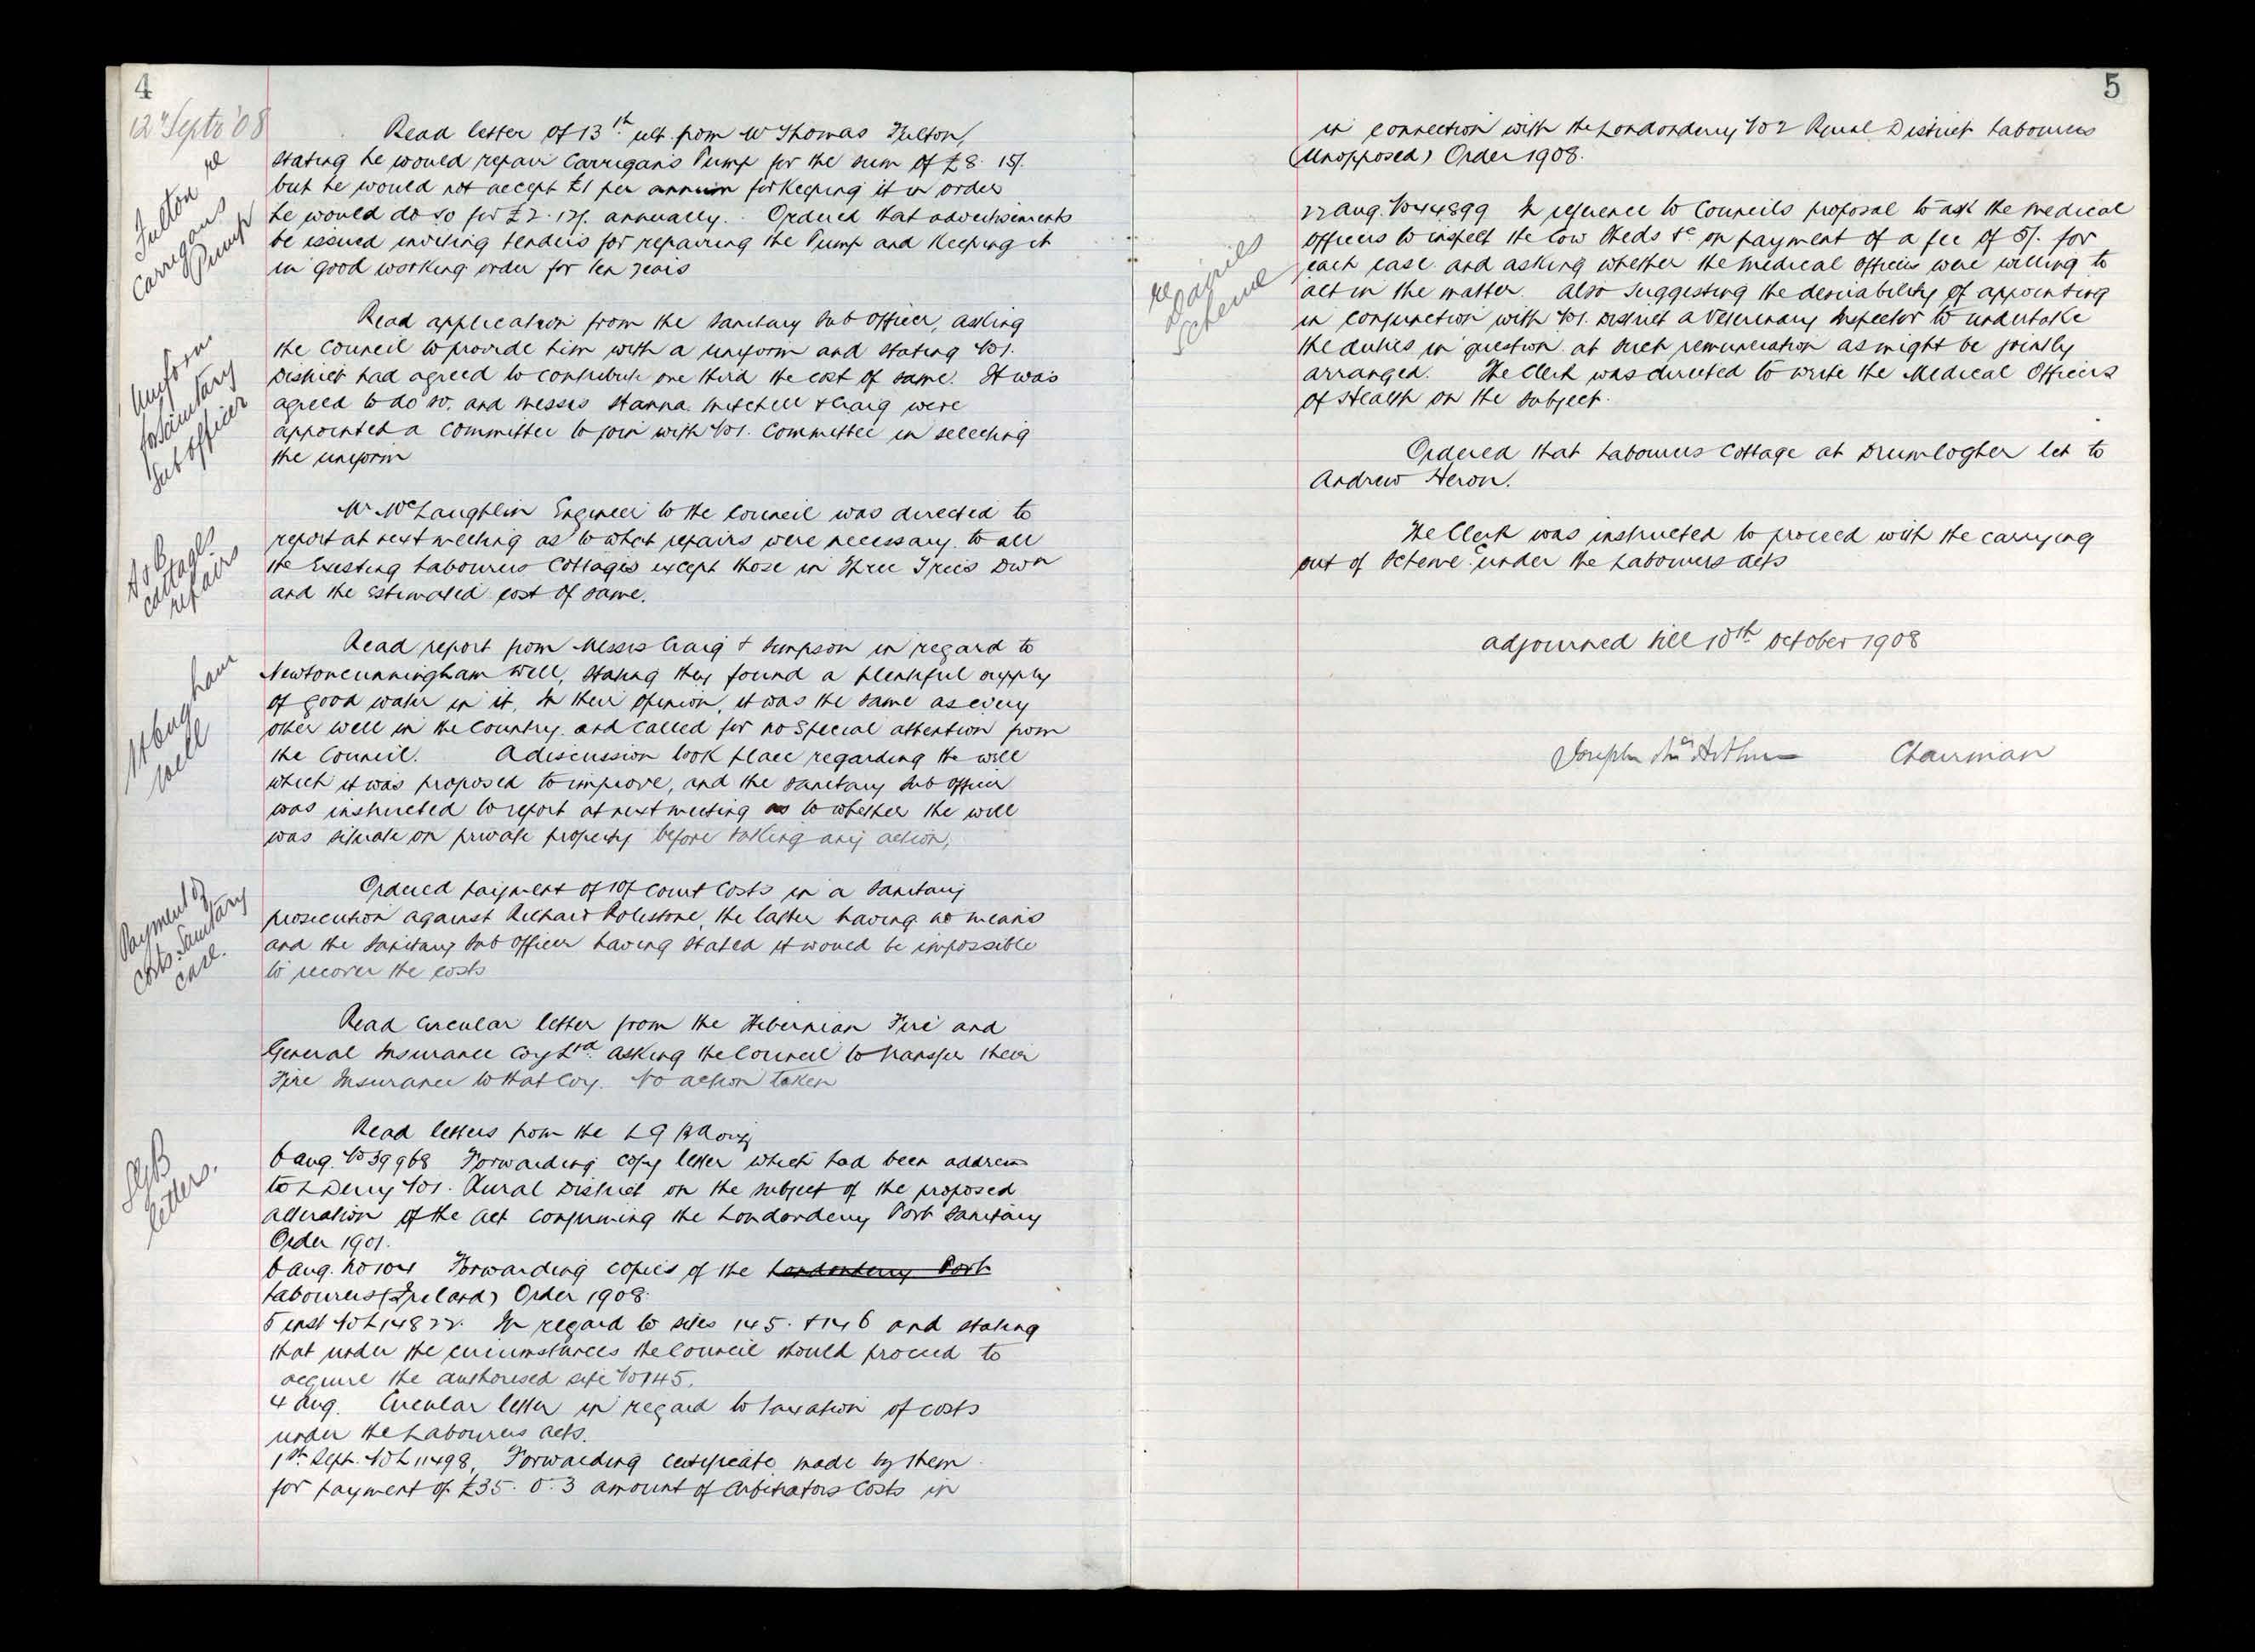 4
12th Septr '08
Fulton re
Carrigans
Pump
Read letter of 13th ult. from Mr Thomas Fulton,
stating he would repair Carrigans Pump for the sum of £8. 15/.
but he would not accept £1 per annum for keeping it in order
he would do so for £2. 12/. annually. Ordered that advertisements
be issued inviting tenders for repairing the Pump and keeping it
in good working order for ten years
Uniform
for Sanitary
Sub officer
Read application from the Sanitary Sub Officer, asking
the Council to provide him with a uniform and stating No 1.
District had agreed to contribute one third the cost of same. It was
agreed to do so, and Messrs Hanna, Mitchell & Craig were
appointed a Committee to join with No 1. Committee in selecting
the uniform
cottages
repairs
Mr McLaughlin Engineer to the Council was directed to
report at next meeting as to what repairs were necessary to all
the Existing Labourers Cottages except those in Three Trees Dwn
and the Estimated cost of same.
Well
Read report from Messrs Craig & Simpson in regard to
Newtoncunningham Well, stating they found a plentiful supply
of good water in it, In their opinion, it was the same as every
other well in the Country and called for no Special attention from
the Council. A discussion took place regarding the well
which it was proposed to improve, and the Sanitary Sub Officer
was instructed to report at next meeting as to whether the well
was situate on private property before taking any action,
Payment of
Costs. Sanitary
case.
Ordered payment of 10/ Court Costs in a Sanitary
prosecution against Richard Rolestone, the latter having no means
and the Sanitary Sub Officer having stated it would be impossible
to recover the costs
Read circular letter from the Hibernian Fire and
General Insurance Coy Ltd. asking the Council to transfer their
Fire Insurance to that Coy. No action taken
LGB
letters.
Read letters from the L G Bd
6 Aug. No 39968 Forwarding copy letter which had been address
to L Derry No 1. Rural District on the subject of the proposed
alteration of the Act Confirming the Londonderry Port Sanitary
Order 1901.
6 Aug. No 104 Forwarding copies of the Londonderry Port
Labourers (Ireland) Order 1908.
5 inst No L14822. In regard to sites 145. & 146 and stating
that under the circumstances the Council should proceed to
acquire the authorised site No 145.
4 Aug. Circular letter in regard to taxation of costs
under the Labourers Acts.
1st Sept. No L11498, Forwarding certificate made by them
for payment of £35. 0. 3 amount of Arbitrators Costs in
5
in connection with the Londonderry No 2 Rural District Labourers
(Unopposed) Order 1908.
re
Dairies
Scheme
22 Aug. No 44899 In reference to Councils proposal to ask the Medical
Officers to inspect the Cow Sheds &c on payment of a fee of 5/. for
each case and asking whether the Medical Officers were willing to
act in the matter. Also suggesting the desirability of appointing
in conjunction with No 1. District a Veterinary Inspector to undertake
the duties in question at such remuneration as might be jointly
arranged. The Clerk was directed to write the Medical Officers
of Health on the subject.
Ordered that Labourers Cottage at Drumlogher let to
Andrew Heron.
The Clerk was instructed to proceed with the carrying
out of Scheme under the Labourers Acts
Adjourned till 10th October 1908
Joseph McArthur Chairman